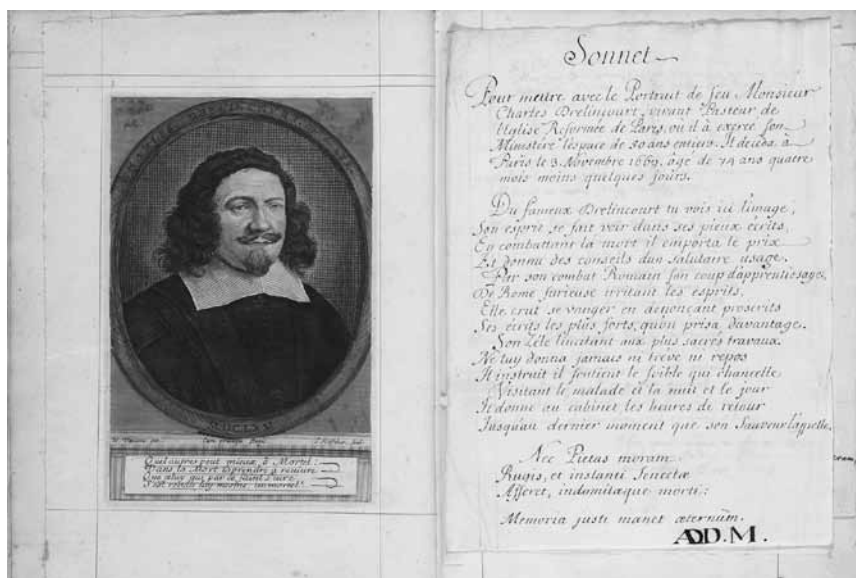 Quel autre peut mieux, ô Mortel:
Dans la Mort t'aprendre à revivre
Que celuy qui par ce
S'est rendu luy mesme immortel?
Sonnet
Pour mettre avec le Portrait de feu Monsieur
Charles Drelincourt, vivant Pasteur de
l'Eglise Reformée de Paris, où il à exercé son
Ministère l'espace de 50 ans entiers. Il deceda à
Paris le 3. Novembre 1669. âge de 74 ans quatre
mois moins quelques jours.
Du fameux Drelincourt tu vois ici l'image,
Son esprit se fait voir dans ses pieux écrits,
En combattant la mort il emporta le prix
Et donna des conseils d'un salutaire usage.
Par son combat Romain son coup d'apprentissage,
De Rome furieuse irritant les esprits,
Elle crut se vanger en dénonçant proscrits
Ses écrits les plus forts, qu'on prisa davantage.
Son Zèle l'incitant aux plus sacrés travaux
Ne luy donna jamais ni trève ni repos
Il instruit il soutient le foible qui chancelle
Visitant le malade et la nuit et le jour
Il donne au cabinet les heures de retour
Jusqu'au dernier moment que son Sauveur l'appelle.
Nec Pietas moram
Rugis, et instanti Senectæ
Afferet, indomitæque morti:
Memoria justi manet æternum.
ADD.M.